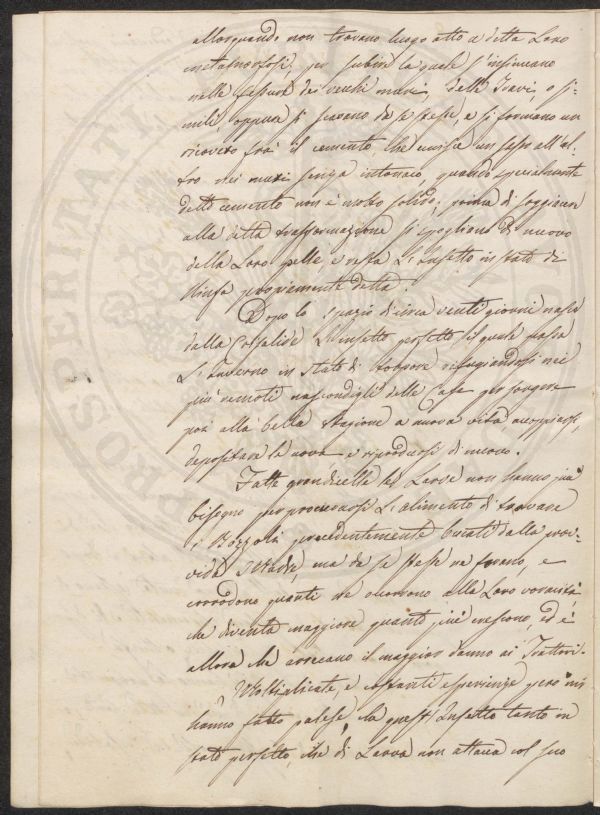 allorquando non trovano luogo atto a detta Loro
metamorfosi, per subire la quale s'insinuano
nelle fessure dei vecchi muri, delle Travi, o si-
mili, oppure si scavano da se stesse, e si formano un
ricovero frà il cemento che unisce un sasso all'al-
tro nei muri senza intonaco, quando specialmente
detto cemento non è molto solido; prima di soggiacere
alla detta trasformazione si spogliano di nuovo
della Loro pelle, e resta L'Insetto in stato di
Ninfa propriamente detta.
Dopo lo spazio di circa venti giorni nasce
dalla Crisalide L'insetto perfetto il quale passa
L'Inverno in stato di torpore rifugiandosi nei
più remoti nascondigli delle Case per sorgere
poi alla bella stagione a nuova vita accoppiarsi,
depositare le uova e riprodursi di nuovo.
Fatte grandicelle le Larve non hanno più
bisogno per procurarsi L'alimento di trovare
i Bozzoli precedentemente bucati dalla prov-
vida Madre, ma da se stesse ne forano, e
corrodono quanti ne occorrono alla Loro voracità
che diventa maggiore quanto più crescono, ed è
allora che arrecano il maggior danno ai Trattori.
Moltiplicate, e costanti esperienze però mi
hanno fatto palese, che quest'Insetto tanto in
stato perfetto, che di Larva non attacca col suo
PROSPERITATI